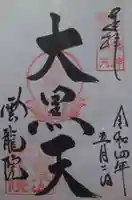 奉拝
大黒天
令和四年
五月二日
雲龍院